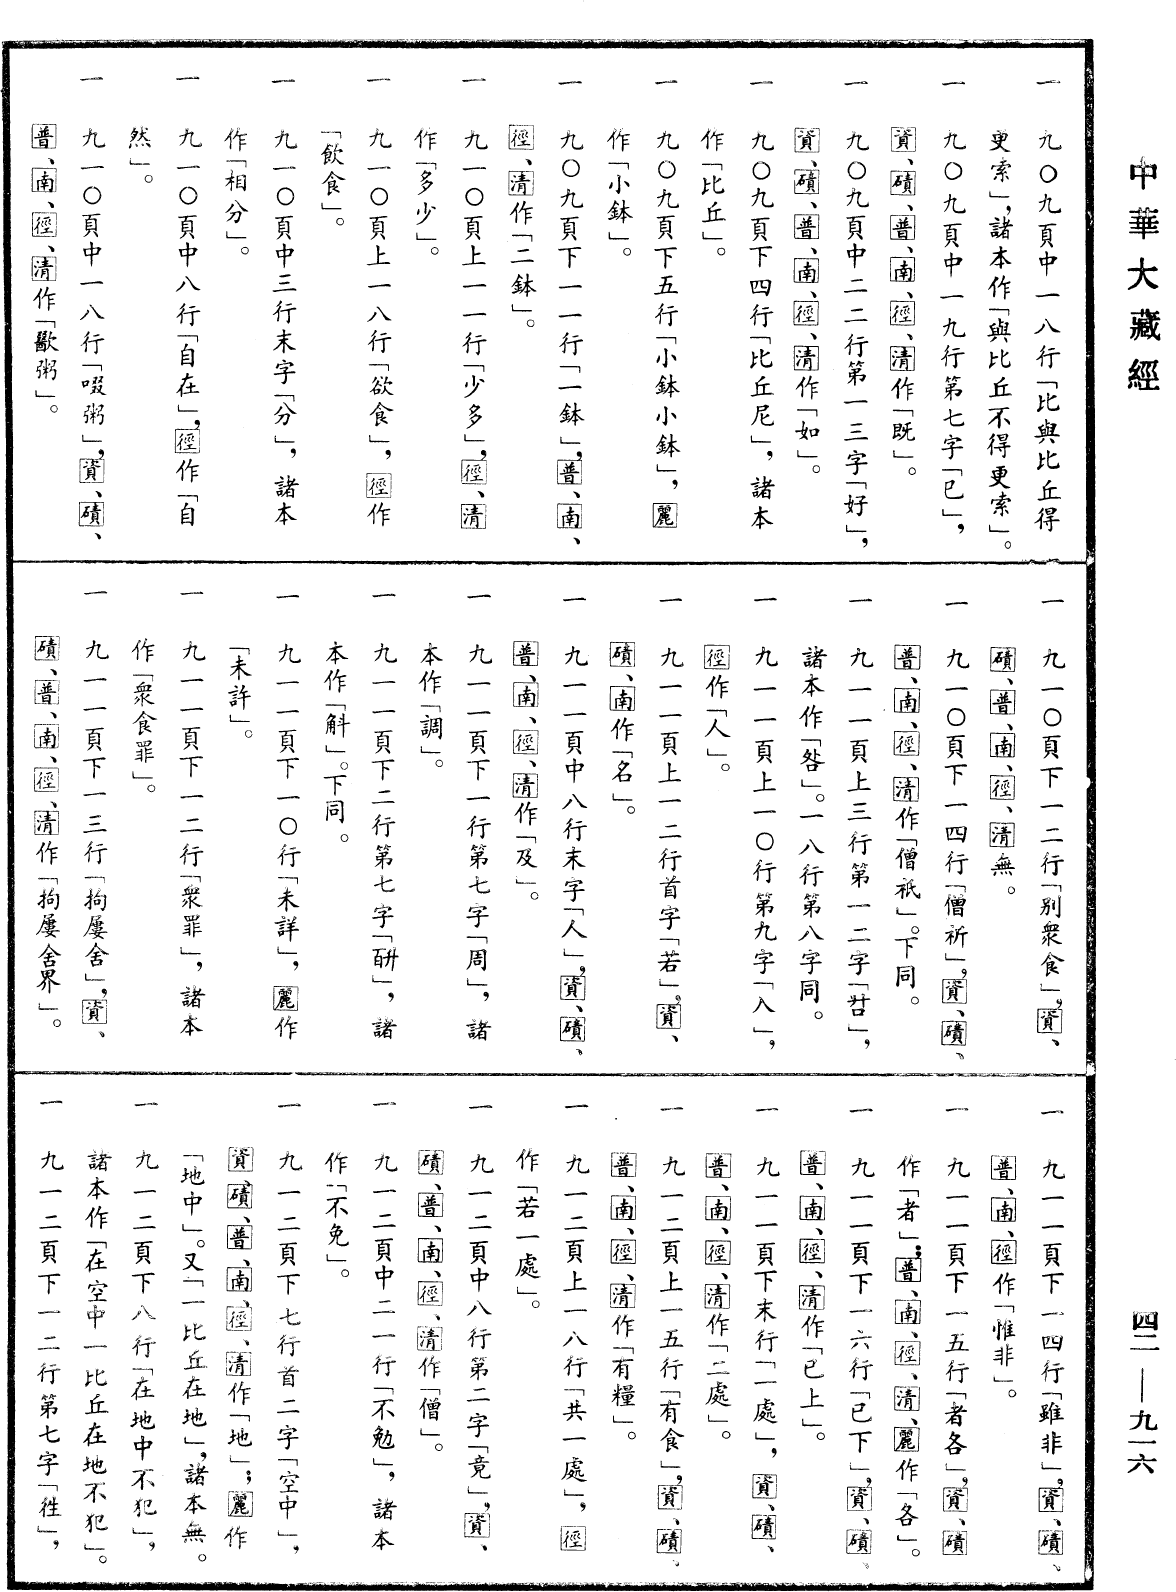 中華大藏經
四二—九一六
一　九〇九頁中一八行「比與比丘得
更索」，諸本作「與比丘不得更索」。
一　九〇九頁中一九行第七字「已」，
資、磧、普、南、徑、清作「既」。
一　九〇九頁中二二行第一三字「好」，
資、磧、普、南、徑、清作「如」。
一　九〇九頁下四行「比丘尼」，諸本
作「比丘」。
一　九〇九頁下五行「小鉢小鉢」，麗
作「小鉢」。
一　九〇九頁下一一行「一鉢」，普、南、
徑、清作「二鉢」。
一　九一〇頁上一一行「少多」，徑、清
作「多少」。
一　九一〇頁上一八行「欲食」，徑作
「飲食」。
一　九一〇頁中三行末字「分」，諸本
作「相分」。
一　九一〇頁中八行「自在」，徑作「自
然」。
一　九一〇頁中一八行「啜粥」，資、磧、
普、南、徑、清作「歠粥」。
一　九一〇頁下一二行「別衆食」，資、
磧、普、南、徑、清無。
一　九一〇頁下一四行「僧祈」，資、磧、
普、南、徑、清作「僧祇」。下同。
一　九一一頁上三行第一二字「呇」，
諸本作「咎」。一八行第八字同。
一　九一一頁上一〇行第九字「入」，
徑作「人」。
一　九一一頁上一二行首字「若」，資、
磧、南作「名」。
一　九一一頁中八行末字「人」，資、磧、
普、南、徑、清作「及」。
一　九一一頁下一行第七字「周」，諸
本作「調」。
一　九一一頁下二行第七字「䪼」，諸
本作「斛」。下同。
一　九一一頁下一〇行「未詳」，麗作
「未許」。
一　九一一頁下一二行「衆罪」，諸本
作「衆食罪」。
一　九一一頁下一三行「拘屢舍」，資、
磧、普、南、徑、清作「拘屢舍界」。
一　九一一頁下一四行「雖非」，資、磧、
普、南、徑作「惟非」。
一　九一一頁下一五行「者各」，資、磧
作「者」；普、南、徑、清、麗作「各」。
一　九一一頁下一六行「已下」，資、磧、
普、南、徑、清作「已上」。
一　九一一頁下末行「一處」，資、磧、
普、南、徑、清作「二處」。
一　九一二頁上一五行「有食」，資、磧、
普、南、徑、清作「有糧」。
一　九一二頁上一八行「共一處」，徑
作「若一處」。
一　九一二頁中八行第二字「竟」，資、
磧、普、南、徑、清作「僧」。
一　九一二頁中二一行「不勉」，諸本
作「不免」。
一　九一二頁下七行首二字「空中」，
資、磧、普、南、徑、清作「地」；麗作
「地中」。又「一比丘在地」，諸本無。
一　九一二頁下八行「在地中不犯」，
諸本作「在空中一比丘在地不犯」。
一　九一二頁下一二行第七字「徃」，